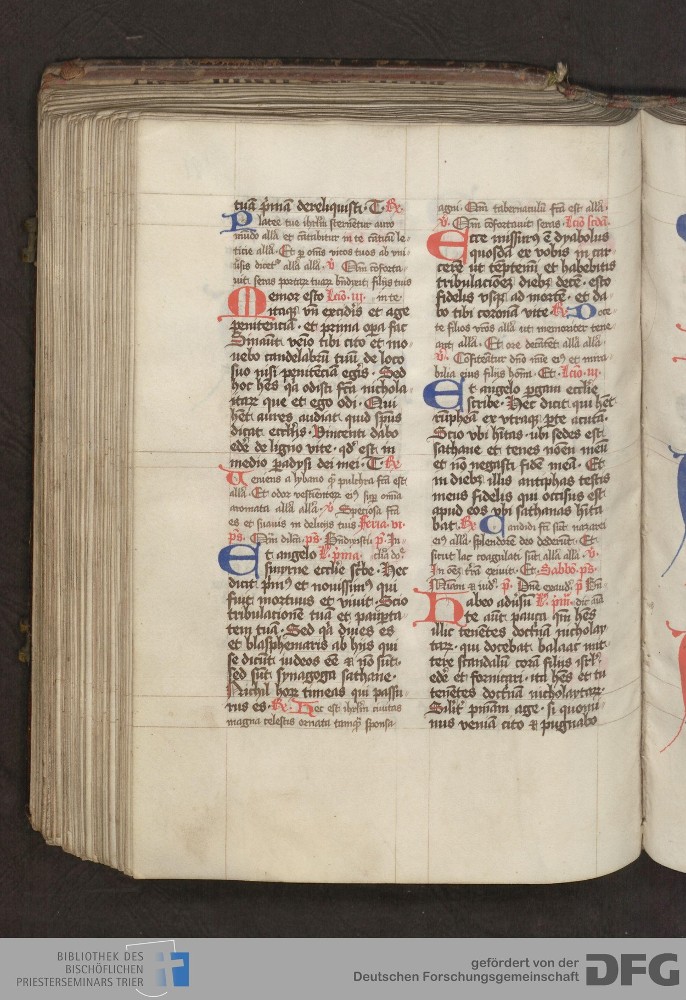 tuā pͥmā dereliquisti · T · R̃
Platee tue ihrl̄m sternētur auro
mūdo all̄a et cātabitur in te cāticū le
ticie all̄a · Et ꝑ om̄s vicos tuos ab vni
all̄a all̄a · v̄ Qm̄ cōforta
uit seras portarū tuarū bn̄dixit filijs tuis
Memor esto Lcō · iij · in te ·
itaqꝫ vn̄ excidis et age
penitenciā · et prima oꝑa fac
Sinaūt · venio tibi cito et mo
uebo candelabrū tuū de loco
suo nisi penitēciā egis · Sed
hoc hēs qꝛ odisti fcā nichola
itaꝝ que et ego odi · Qui
hēt aures audiat quid spūs
dicat eccl̄ijs · Vincenti dabo
edē de ligno vite · qđ est in
medio ꝑadysi dei mei · T · R̃
Veniens a lybano qͣ pulchra fcā est
all̄a · Et odor vestimētoꝝ eiꝰ suꝑ om̄ia
aromata all̄a all̄a · v̄ Speciosa fcā
es et suauis in delicijs tuis feria · vi ·
pͣs · Qm̄ dilex̄ · pͣs · Bn̄dixisti · p̄ · In
Et angelo L̄ · pͥma · clīa do
smyrne eccl̄ie sc̄be · Hec
dicit pͥmꝰ et nouissimꝰ qui
fuit mortuus et viuit · Scio
tribulationē tuā et pauꝑta
tem tuā · Sed qꝛ diues es
et blasphemaris ab hijs qui
se dicūt iudeos eē et nō sūt ·
sed sūt synagoga sathane ·
Nichil hoꝝ timeas qui passu
rus es · R̃ · Hec est ihrl̄m ciuitas
magna celestis ornata tamqͣ sponsa
agni · Qm̄ tabernaculū fcā est all̄a
v̄ · Qm̄ cōfortauit seras · Lcō scđa
Ecce missurꝰ ē dyabolus
quosdā ex vobis in car
cerē ut tēptemī et habebitis
tribulacionē diebꝫ decē · esto
fidelis vsqꝫ ad mortē · et da
bo tibi coronā vite · R̃ · Doce
te filios vrōs all̄a ut memoriter tene
ant all̄a · Et ore decātēt all̄a all̄a ·
v̄ · Cōfiteātur dn̄o mīe eiꝰ et mira
bilia eius filijs hom̄ · Et · Lcō · iij ·
Et angelo ꝑgami eccl̄ie
scribe · Hec dicit qui hēt
rūpheā ex vtraqꝫ ꝑte acutā ·
Scio vbi hītas · ubi sedes est
sathane et tenes nōen meū
et nō negasti fidē meā · Et
in diebꝫ illis antiphas testis
meus fidelis qui occisus est
apud eos vbi sathanas hīta
bat · R̃ · Candidi fcī sūt nazarei
eiꝰ all̄a splendorē deo dederūt · Et
sicut lac coagulati sūt all̄a all̄a · v̄ ·
In oēꝫ trā exiuit · Et · Sabbō · pͣs ·
Miscdiam et iud̄ · p̄ · Dn̄e exaud̄ · p̄ · Bn̄
Habeo adūsū L̄ · pͥm · dic aīa
te aūt pauca qꝛ hēs
illic tenētes doctnā nicholay
taꝝ · qui docebat balaac mit
tere scandalū corā filijs isrl̄ ·
edē et fornicari · ita hēs et tu
tenētes doctnā nicholaytaꝝ
Silīt pniāam age · si quomi
nus veniā cito et pugnabo
BIBLIOTHEK DES
BISCHÖFLICHEN
PRIESTERSEMINARS TRIER
gefördert von der
Deutschen Forschungsgemeinschaft
DFG